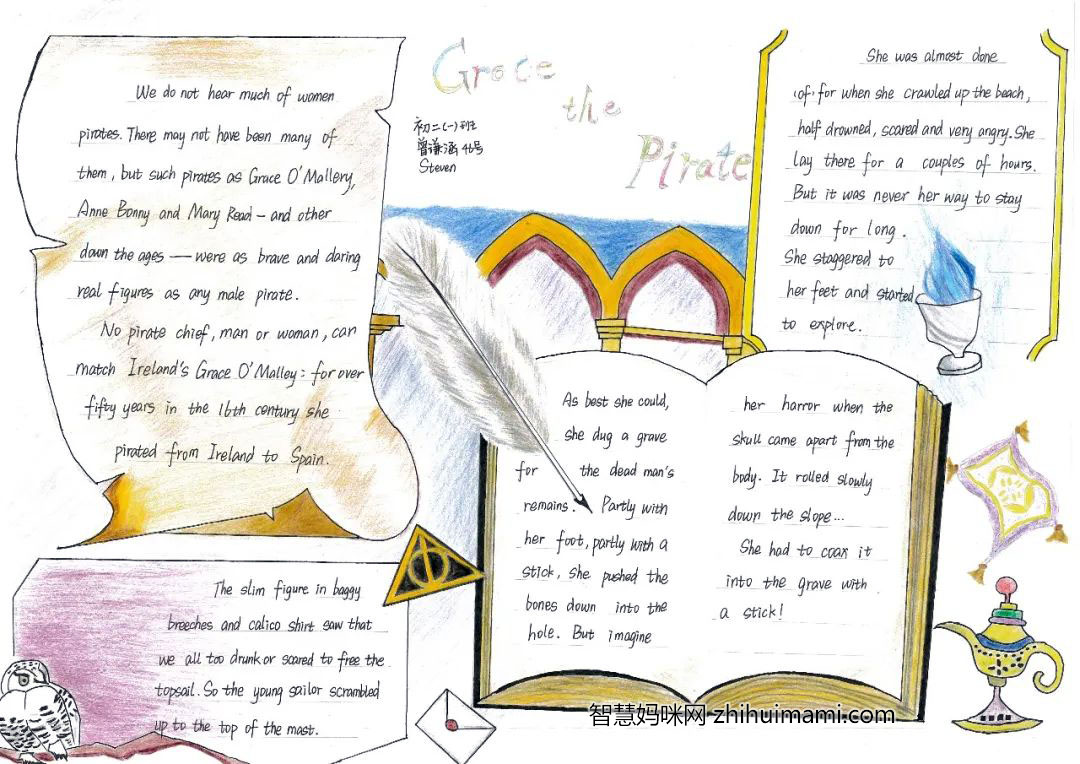 Grace
the
Pirate
初二(一)班
曾谦涵 46号
Steven
We do not hear much of women
pirates. There may not have been many of
them, but such pirates as Grace O'Mallery,
Anne Bonny and Mary Read – and other
down the ages — were as brave and daring
real figures as any male pirate.
No pirate chief, man or woman, can
match Ireland's Grace O'Malley: for over
fifty years in the 16th century she
pirated from Ireland to Spain.
The slim figure in baggy
breeches and calico shirt saw that
we all too drunk or scared to free the
topsail. So the young sailor scrambled
up to the top of the mast.
As best she could,
she dug a grave
for the dead man's
remains. Partly with
her foot, partly with a
stick, she pushed the
bones down into the
hole. But imagine
her harror when the
skull came apart from the
body. It rolled slowly
down the slope...
She had to coax it
into the grave with
a stick!
She was almost done
of for when she crawled up the beach,
half drowned, scared and very angry. She
lay there for a couples of hours.
But it was never her way to stay
down for long.
She staggered to
her feet and started
to explore.
智慧妈咪网 zhihuimami.com